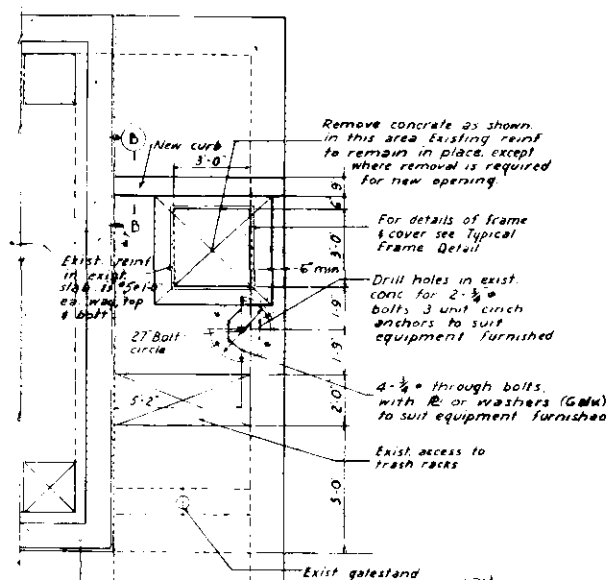 Remove concrete as shown
in this area Existing reinf
to remain in place, except
where removal is required
for new opening.
B
New curb
3'-0"
B
For details of frame
& cover see Typical
Frame Detail
Exist. reinf
in exist.
slab is #5@1'-0"
ea. way top
& bott.
6" min
3'-0"
Drill holes in exist.
conc for 2-¾"ø
bolts 3 unit cinch
anchors to suit
equipment furnished
1'-9"
27" Bolt
circle
1'-9"
4-¾"ø through bolts,
with ⅊ or washers (Galv)
to suit equipment furnished
5'-2"
2'-0"
Exist. access to
trash racks
5'-0"
Exist gatestand